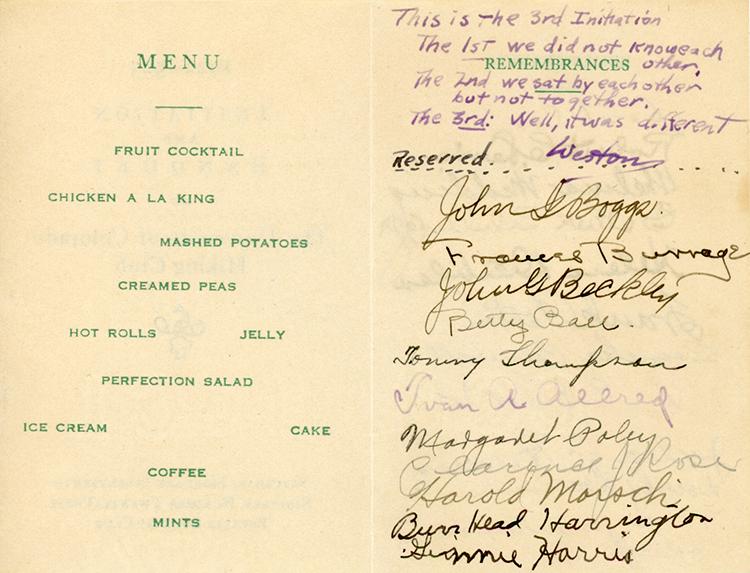 MENU
FRUIT COCKTAIL
CHICKEN A LA KING
MASHED POTATOES
CREAMED PEAS
HOT ROLLS JELLY
PERFECTION SALAD
ICE CREAM CAKE
COFFEE
MINTS
This is the 3rd Initiation
The 1st we did not know each
other.
REMEMBRANCES
The 2nd we sat by each other
but not together.
The 3rd: Well, it was different
Reserved. Weston
John G Boggs.
Frances Burrage
John G Beckley
Betty Ball.
Tommy Thompson
Ivan A Allred
Margaret Poley
Clarence J Rose
Harold
Burr Head Harrington
Harris